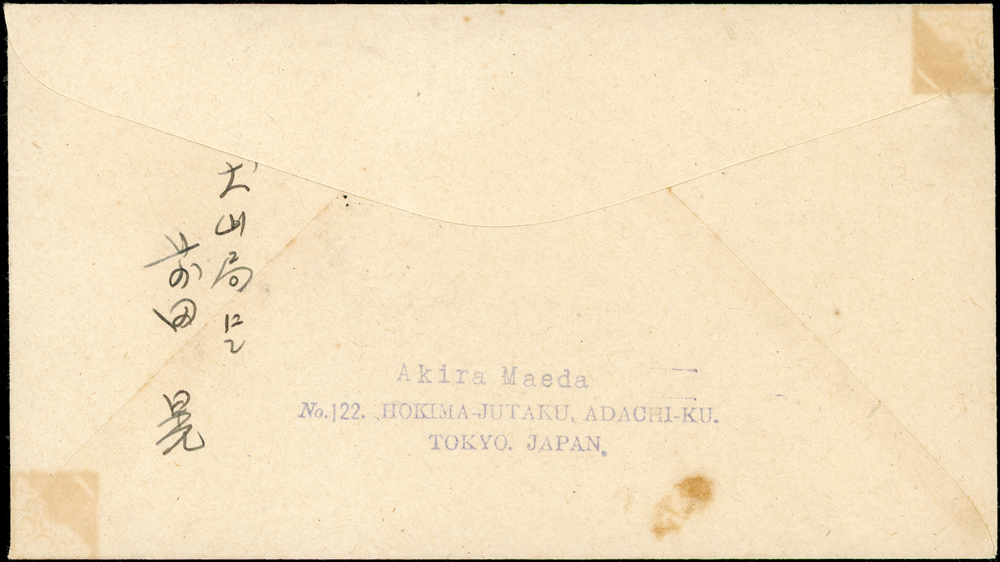 犬山局にて
前田 晃
Akira Maeda
No.122. HOKIMA-JUTAKU, ADACHI-KU.
TOKYO. JAPAN.